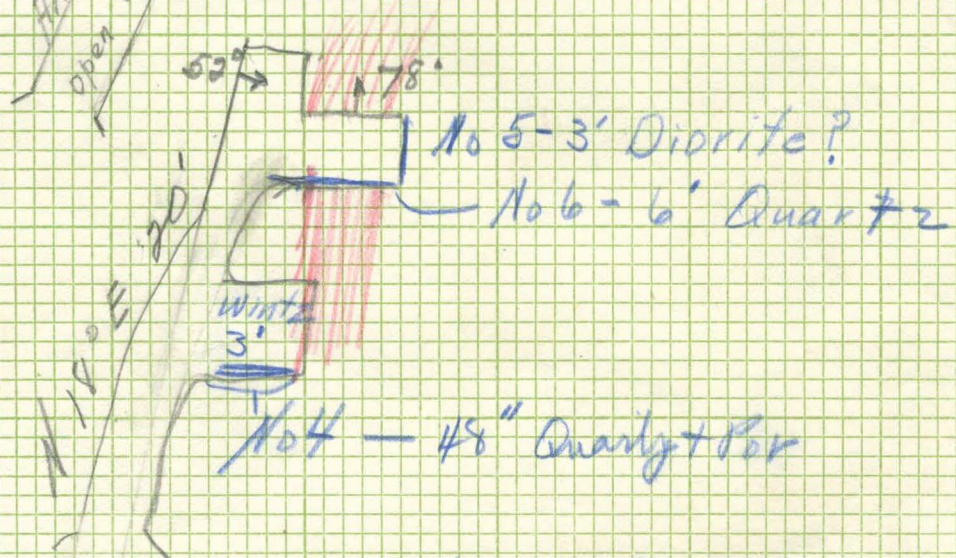 open
52°
78°
No 5 - 3' Diorite?
No 6 - 6' Quartz
N 18° E 20'
Wintz
3'
No 4 — 48" Quartz + Por